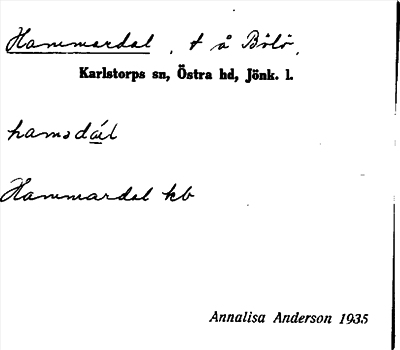 Hammardal, t å Bölö,
Karlstorps sn, Östra hd, Jönk. l.
hamədál
Hammardal kb
Annalisa Anderson 1935